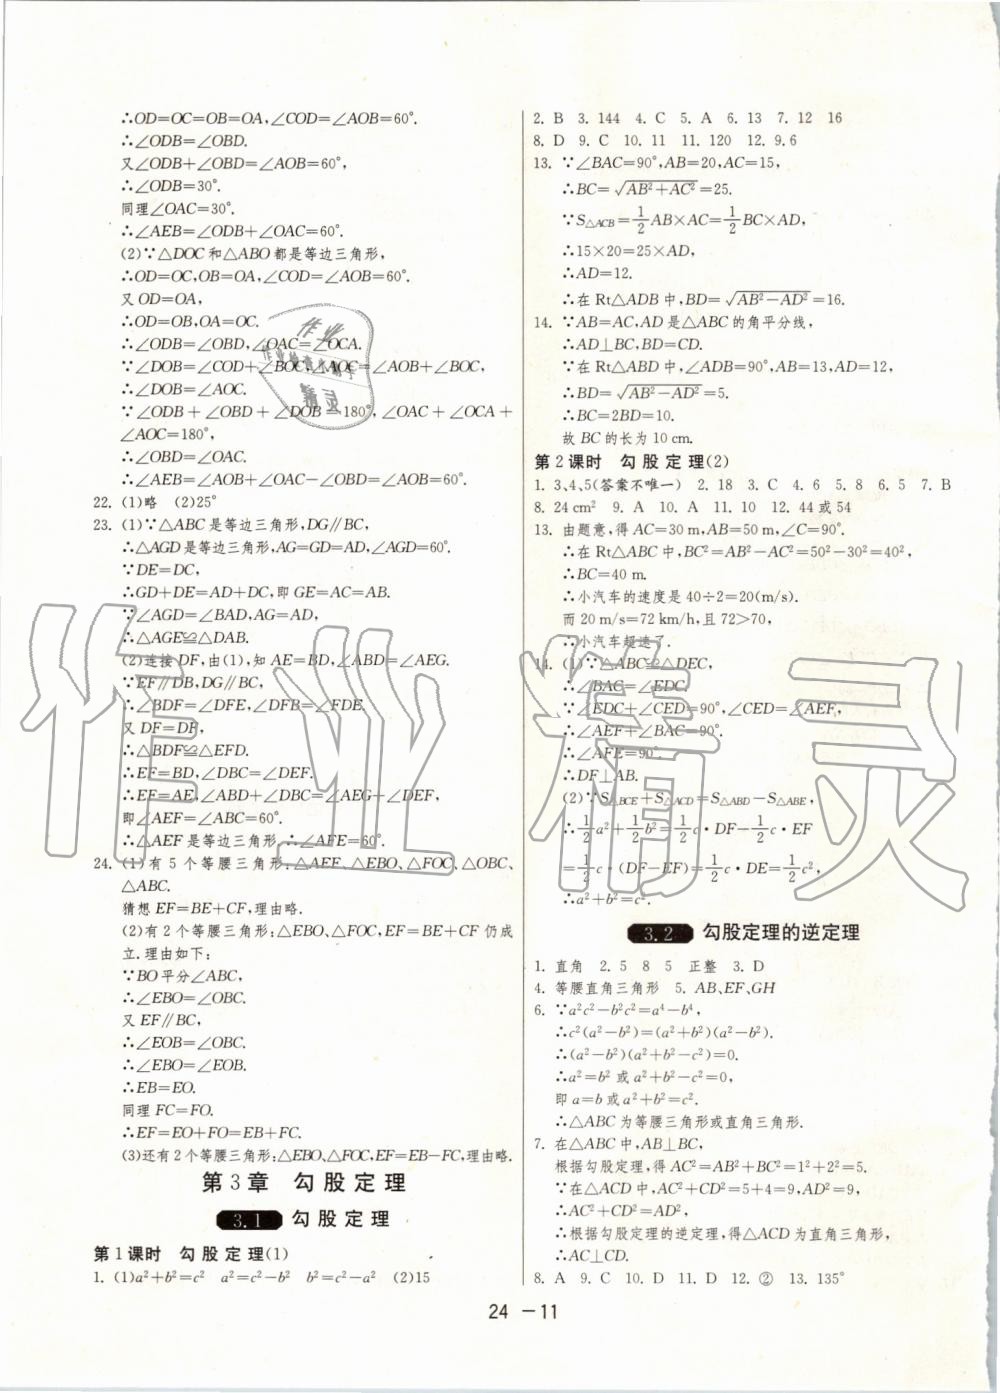 ∴OD=OC=OB=OA,∠COD=∠AOB=60°.
∴∠ODB=∠OBD.
又∠ODB+∠OBD=∠AOB=60°,
∴∠ODB=30°.
同理∠OAC=30°.
∴∠AEB=∠ODB+∠OAC=60°.
(2)∵△DOC和△ABO都是等边三角形,
∴OD=OC,OB=OA,∠COD=∠AOB=60°.
又OD=OA,
∴OD=OB,OA=OC.
∴∠ODB=∠OBD,∠OAC=∠OCA.
∵∠DOB=∠COD+∠BOC,∠AOC=∠AOB+∠BOC,
∴∠DOB=∠AOC.
∵∠ODB+∠OBD+∠DOB=180°,∠OAC+∠OCA+
∠AOC=180°,
∴∠OBD=∠OAC.
∴∠AEB=∠AOB+∠OAC-∠OBD=∠AOB=60°.
22. (1)略 (2)25°
23. (1)∵△ABC是等边三角形,DG∥BC,
∴△AGD是等边三角形,AG=GD=AD,∠AGD=60°.
∵DE=DC,
∴GD+DE=AD+DC,即GE=AC=AB.
∵∠AGD=∠BAD,AG=AD,
∴△AGE≌△DAB.
(2)连接DF,由(1),知AE=BD,∠ABD=∠AEG.
∵EF∥DB,DG∥BC,
∴∠BDF=∠DFE,∠DFB=∠FDE.
又DF=DF,
∴△BDF≌△EFD.
∴EF=BD,∠DBC=∠DEF.
∴EF=AE,∠ABD+∠DBC=∠AEG+∠DEF,
即∠AEF=∠ABC=60°.
∴△AEF是等边三角形.∴∠AFE=60°.
24. (1)有5个等腰三角形:△AEF、△EBO、△FOC、△OBC、
△ABC.
猜想EF=BE+CF,理由略.
(2)有2个等腰三角形:△EBO、△FOC,EF=BE+CF仍成
立.理由如下:
∵BO平分∠ABC,
∴∠EBO=∠OBC.
又EF∥BC,
∴∠EOB=∠OBC.
∴∠EBO=∠EOB.
∴EB=EO.
同理FC=FO.
∴EF=EO+FO=EB+FC.
(3)还有2个等腰三角形:△EBO、△FOC,EF=EB-FC,理由略.
第3章 勾股定理
3.1 勾股定理
第1课时 勾股定理(1)
1. (1)a²+b²=c² a²=c²-b² b²=c²-a² (2)15
2. B 3. 144 4. C 5. A 6. 13 7. 12 16
8. D 9. C 10. 11 11. 120 12. 9.6
13. ∵∠BAC=90°,AB=20,AC=15,
∴BC=√(AB²+AC²)=25.
∵S△ACB=1/2AB×AC=1/2BC×AD,
∴15×20=25×AD,
∴AD=12.
∴在Rt△ADB中,BD=√(AB²-AD²)=16.
14. ∵AB=AC,AD是△ABC的角平分线,
∴AD⊥BC,BD=CD.
∵在Rt△ABD中,∠ADB=90°,AB=13,AD=12,
∴BD=√(AB²-AD²)=5.
∴BC=2BD=10.
故BC的长为10 cm.
第2课时 勾股定理(2)
1. 3、4、5(答案不唯一) 2. 18 3. C 4. 6 5. 8 6. 5 7. B
8. 24 cm² 9. A 10. A 11. 10 12. 44或54
13. 由题意,得AC=30 m,AB=50 m,∠C=90°.
∴在Rt△ABC中,BC²=AB²-AC²=50²-30²=40²,
∴BC=40 m.
∴小汽车的速度是40÷2=20(m/s).
而20 m/s=72 km/h,且72>70,
∴小汽车超速了.
14. (1)∵△ABC≌△DEC,
∴∠BAC=∠EDC.
∵∠EDC+∠CED=90°,∠CED=∠AEF,
∴∠AEF+∠BAC=90°.
∴∠AFE=90°.
∴DF⊥AB.
(2)∵S△BCE+S△ACD=S△ABD-S△ABE,
∴1/2a²+1/2b²=1/2c·DF-1/2c·EF
=1/2c·(DF-EF)=1/2c·DE=1/2c²,
∴a²+b²=c².
3.2 勾股定理的逆定理
1. 直角 2. 5 8 5 正整 3. D
4. 等腰直角三角形 5. AB、EF、GH
6. ∵a²c²-b²c²=a⁴-b⁴,
∴c²(a²-b²)=(a²+b²)(a²-b²).
∴(a²-b²)(a²+b²-c²)=0.
∴a²=b²或a²+b²-c²=0,
即a=b或a²+b²=c².
∴△ABC为等腰三角形或直角三角形.
7. 在△ABC中,AB⊥BC,
根据勾股定理,得AC²=AB²+BC²=1²+2²=5.
∵在△ACD中,AC²+CD²=5+4=9,AD²=9,
∴AC²+CD²=AD².
∴根据勾股定理的逆定理,得△ACD为直角三角形.
∴AC⊥CD.
8. A 9. C 10. D 11. D 12. ② 13. 135°
24 -11
作业精灵